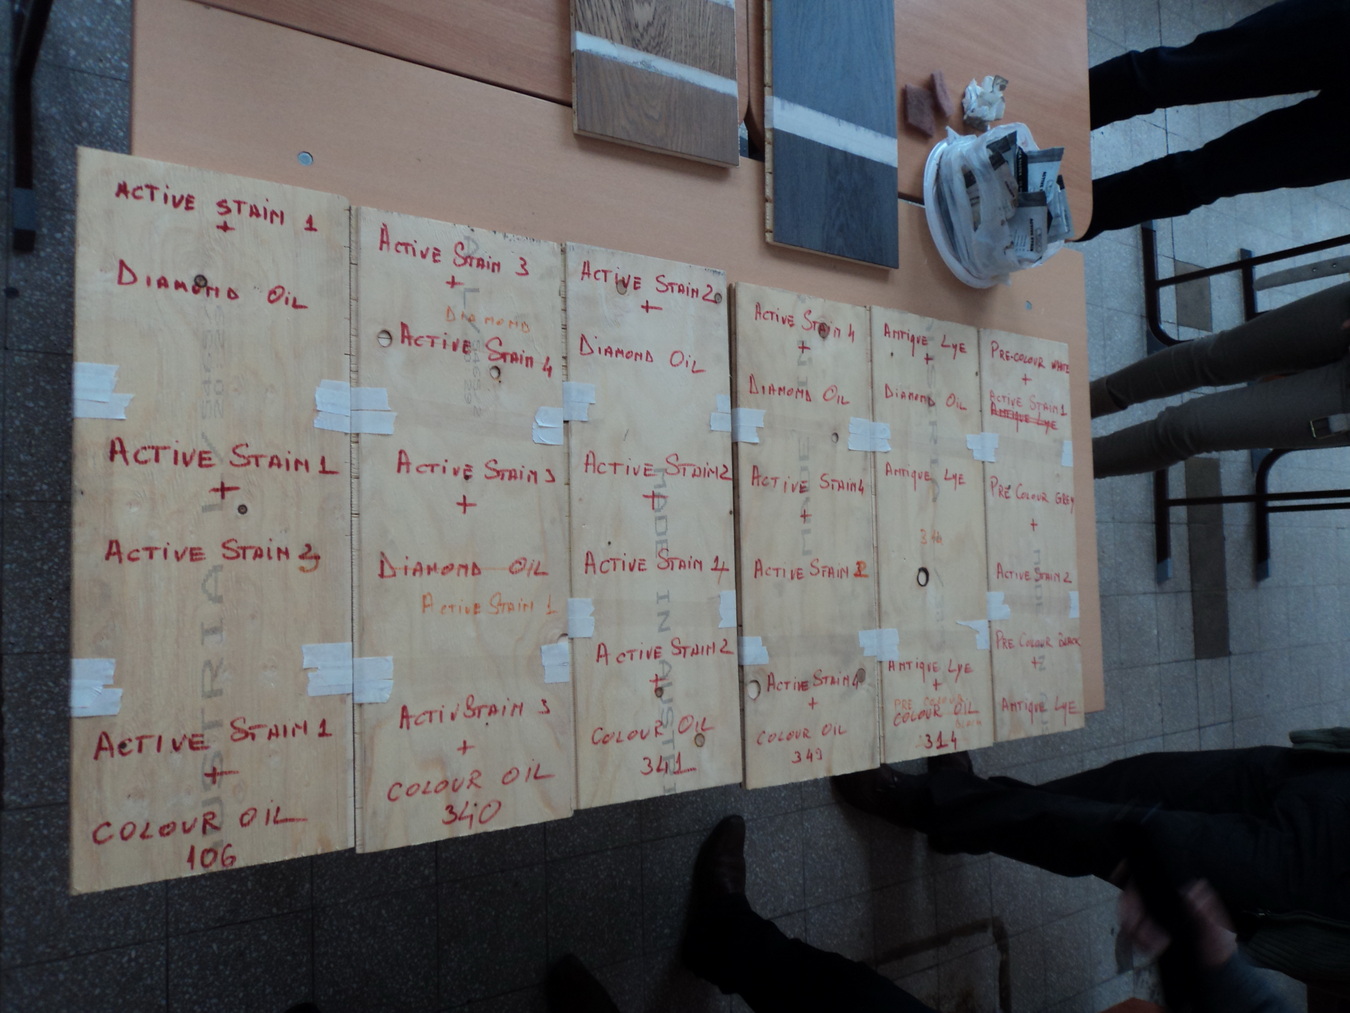 ACTIVE STAIN 1
+
DIAMOND OIL
ACTIVE STAIN 1
+
ACTIVE STAIN 3
ACTIVE STAIN 1
+
COLOUR OIL
106
ACTIVE STAIN 3
+
DIAMOND
ACTIVE STAIN 4
ACTIVE STAIN 3
+
DIAMOND OIL
ACTIVE STAIN 1
ACTIV STAIN 3
+
COLOUR OIL
340
ACTIVE STAIN 2
+
DIAMOND OIL
ACTIVE STAIN 2
+
ACTIVE STAIN 1
ACTIVE STAIN 2
+
COLOUR OIL
341
MADE IN AUSTRI
ACTIVE STAIN 4
+
DIAMOND OIL
ACTIVE STAIN 4
+
ACTIVE STAIN 2
ACTIVE STAIN 4
+
COLOUR OIL
349
ANTIQUE LYE
+
DIAMOND OIL
ANTIQUE LYE
ANTIQUE LYE
+
PRE COLOUR
COLOUR OIL
314
PRE-COLOUR WHITE
+
ACTIVE STAIN 1
ANTIQUE LYE
PRE COLOUR GREY
+
ACTIVE STAIN 2
PRE COLOUR BLACK
+
ANTIQUE LYE